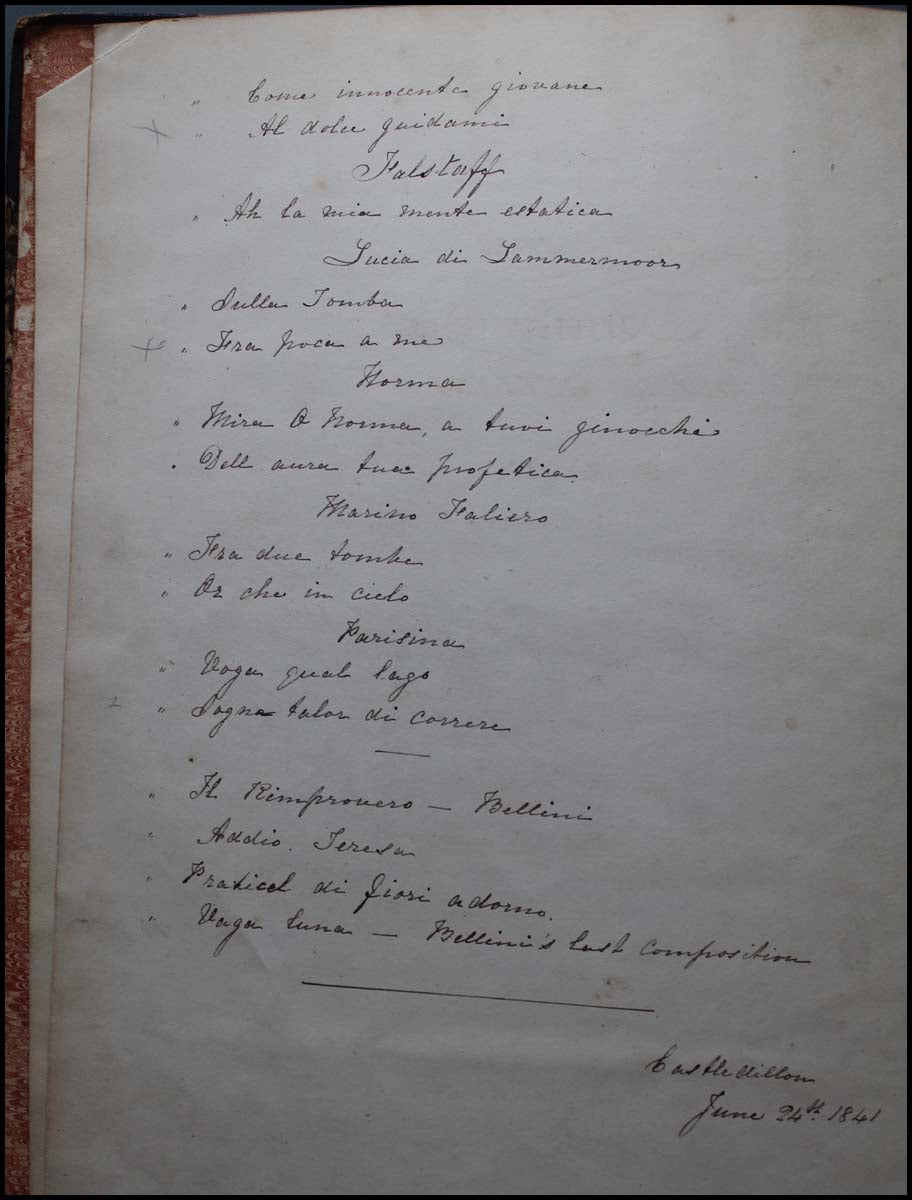 " Come innocente giovane
" Al dolce guidami
Falstaff
" Ah la mia mente estatica
Lucia di Lammermoor
" Sulla Tomba
" Fra poca a me
Norma
" Mira O Norma, a tuoi ginocchi
" Dell aura tua profetica
Marino Faliero
" Fra due tombe
" Or che in cielo
Parisina
" Voga qual lago
" Sogno talor di correre
" Il Rimprovero — Bellini
" Addio. Teresa
" Praticel di fiori adorno.
" Vaga luna — Bellini's last composition
Castledillon
June 24th. 1841